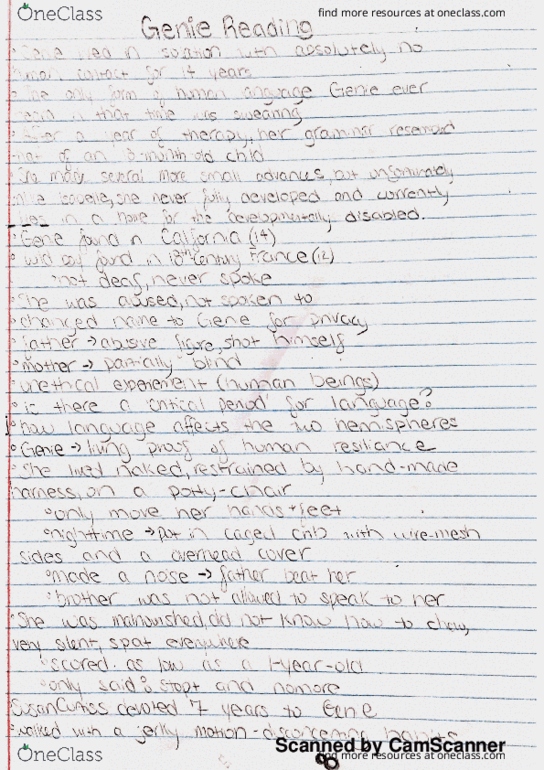 OneClass
find more resources at oneclass.com
Genie Reading
• Genie lived in isolation with absolutely no
human contact for 14 years
• The only form of human language Genie ever
heard in that time was swearing
• After a year of therapy, her grammar resembled
that of an 18-month old child
• She made several more small advances, but unfortunately
like Isabelle, she never fully developed and currently
lives in a home for the developmentally disabled.
• Genie found in California (14)
• wild boy found in 18th century France (12)
• not deaf, never spoke
• She was abused, not spoken to
• changed name to Genie for privacy
• father → abusive figure, shot himself
• mother → partially blind
• unethical experement (human beings)
• is there a 'critical period' for language?
• how language affects the two hemispheres
• Genie → living proof of human resiliance
• She lived naked, restrained by hand-made
harness, on a potty-chair
• only move her hands + feet
• nighttime → put in caged crib with wire-mesh
sides and a overhead cover
• made a nose → father beat her
• brother was not allowed to speak to her
• She was malnourished, did not know how to chew,
very silent, spat everywhere
• scored as low as a 1-year-old
• only said: stopt and nomore
Susan Curtiss devoted 7 years to Genie
• walked with a jerky motion - disconcerting habits
Scanned by CamScanner
OneClass
find more resources at oneclass.com